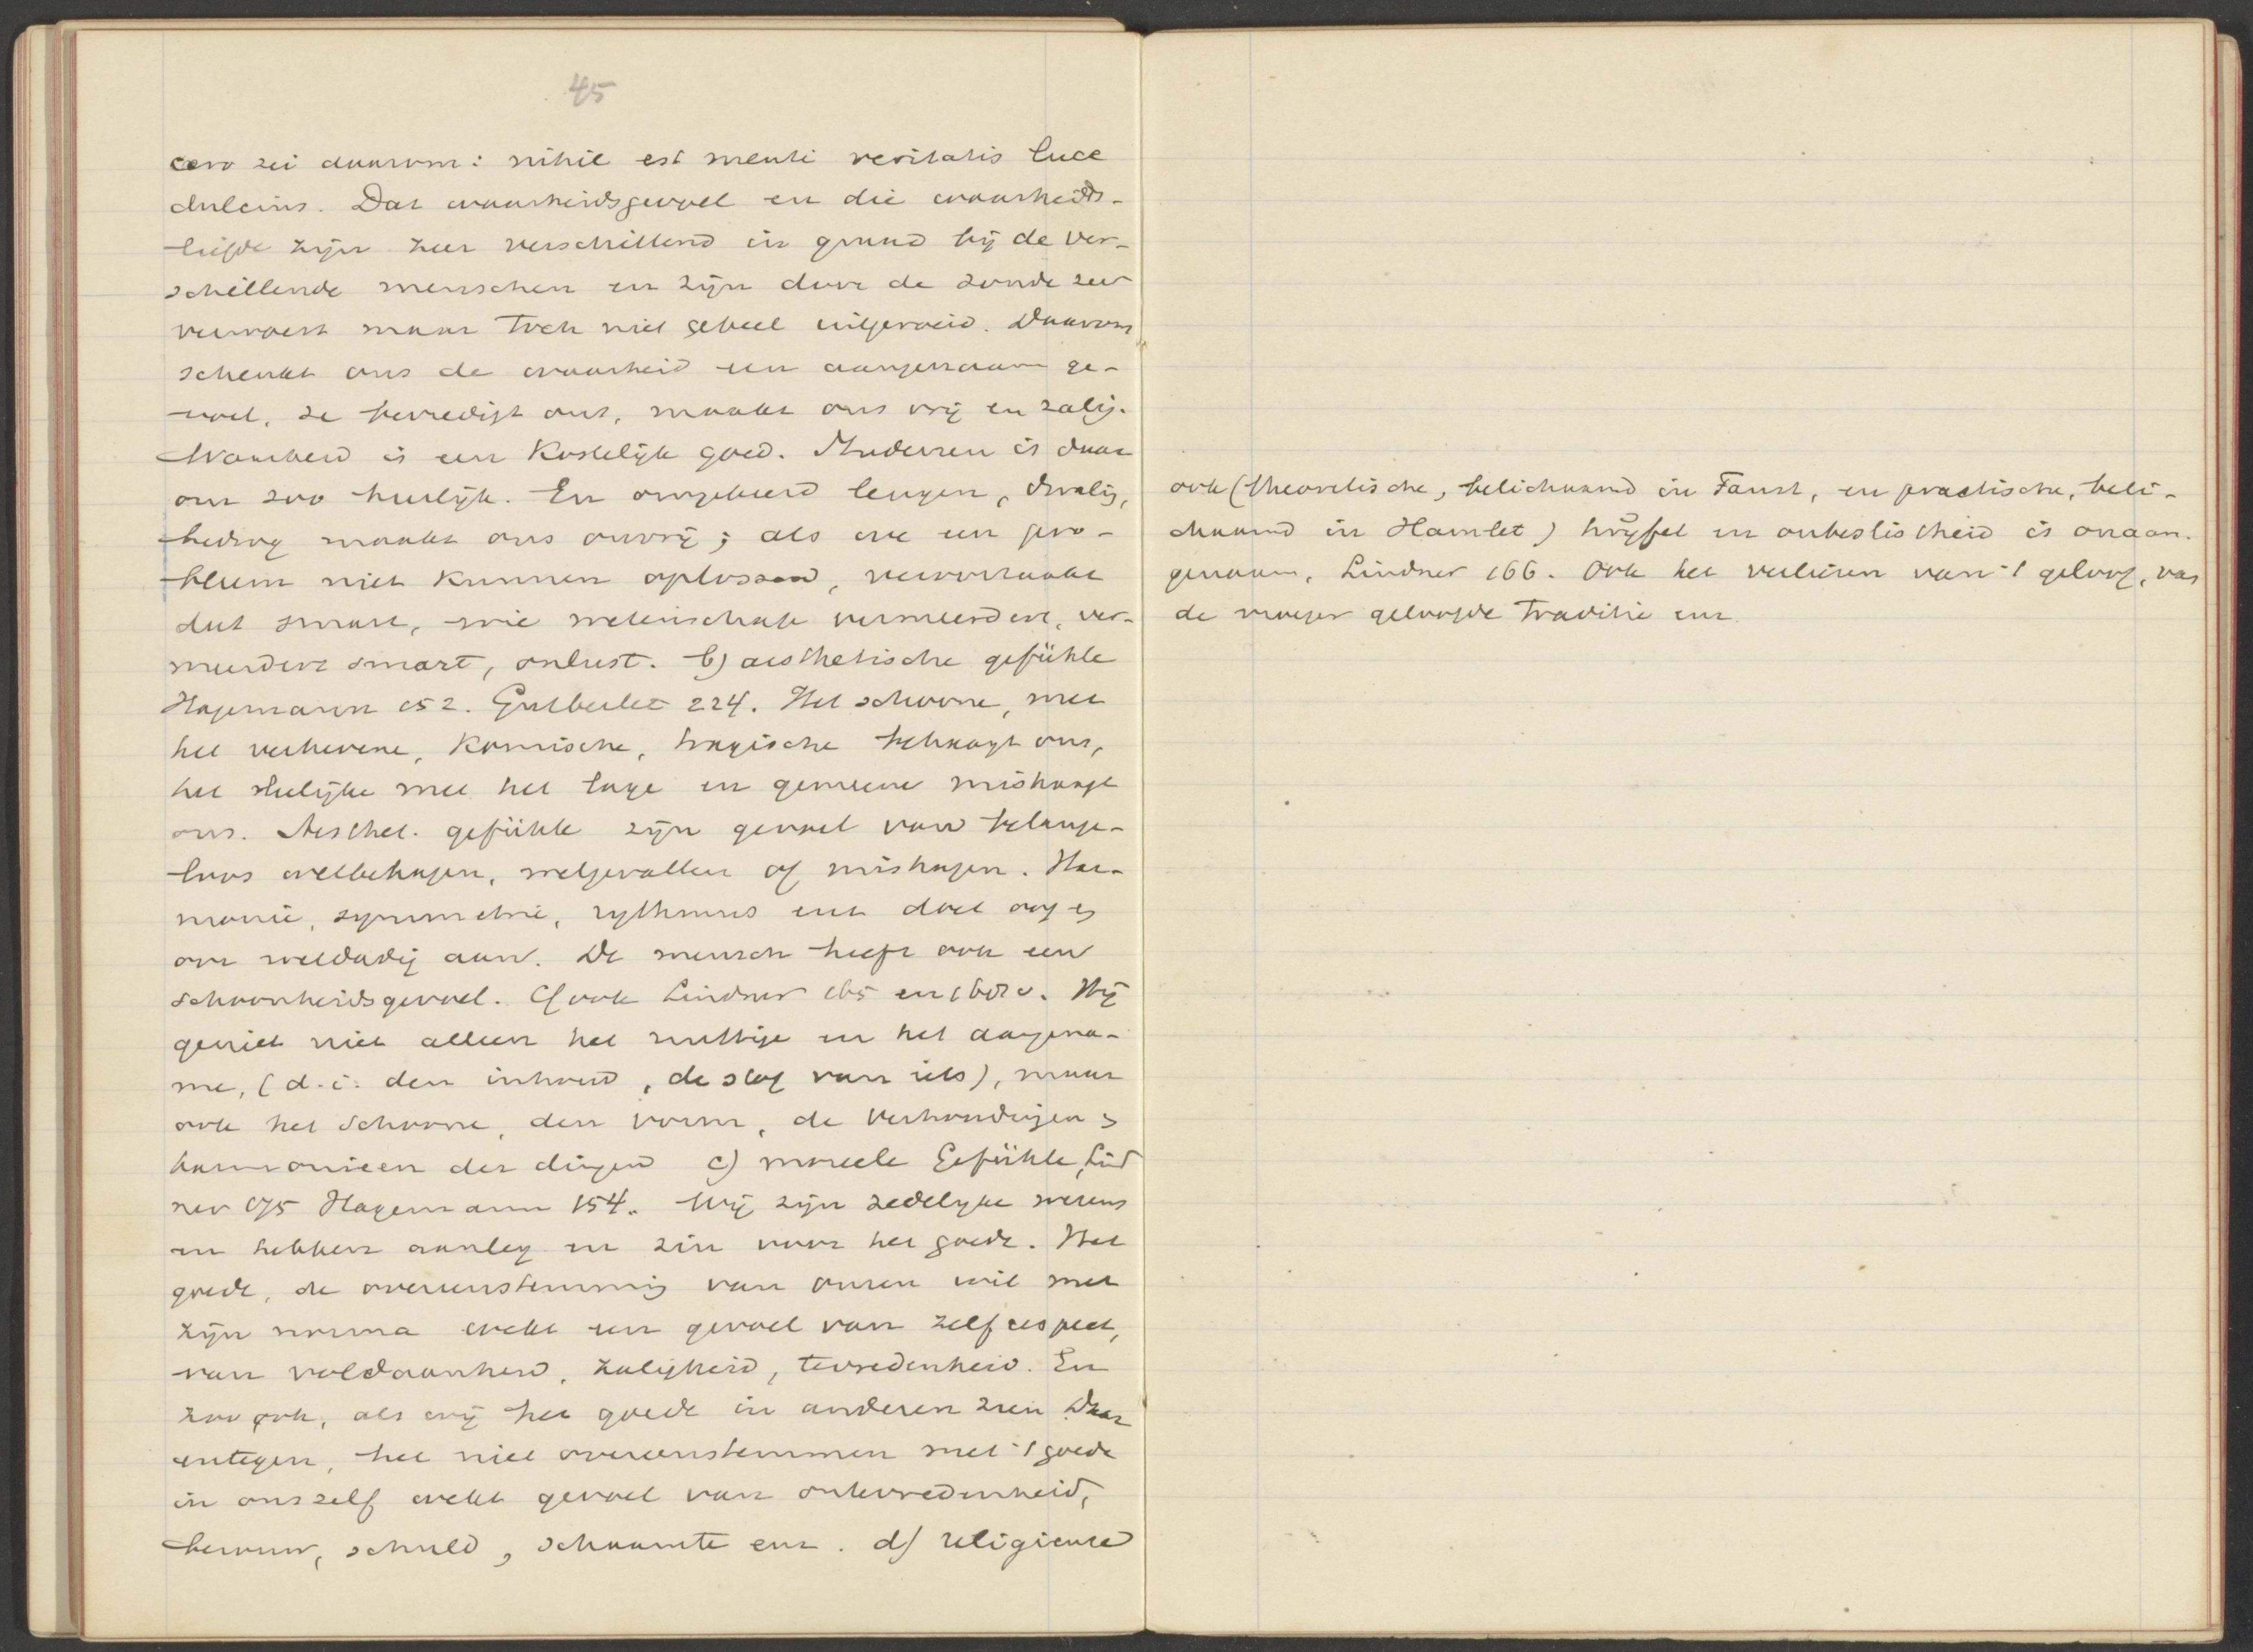 45
cero zei daarom: nihil est menti veritatis luce
dulcius. Dat waarheidsgevoel en die waarheids-
liefde zijn zeer verschillend in graad bij de ver-
schillende menschen en zijn door de zonde zeer
verwoest maar toch niet geheel uitgeroeid. Daarom
schenkt ons de waarheid een aangenaam ge-
voel, ze bevredigt ons, maakt ons vrij en zalig.
Waarheid is een kostelijk goed. Studeeren is daar
om zoo heerlijk. En omgekeerd leugen, dwaling,
bedrog maakt ons onvrij; als we een pro-
bleem niet kunnen oplossen, veroorzaakt
dat smart, wie wetenschap vermeerdert, ver-
meerdert smart, onlust. b) aesthetische gefühle
Hagemann 152. Gutberlet 224. Het schoone, met
het verhevene, komische, tragische behaagt ons,
het leelijke met het lage en gemeene mishaagt
ons. Aesthet. gefühle zijn gevoel van belange-
loos welbehagen, welgevallen of mishagen. Har-
monie, symmetrie, rythmus enz doet oog en
oor weldadig aan. De mensch heeft ook een
schoonheidsgevoel. Cf ook Lindner 165 en Hij
geniet niet alleen het nuttige en het aangena-
me, (d.i. den inhoud, de stof van iets), maar
ook het schoone, den vorm, de verhoudingen en
harmonieen der dingen c) moreele Gefühle, Lind
ner 175 Hagemann 154. Wij zijn zedelijke wezens
en hebben aanleg en zin voor het goede. Het
goede, de overeenstemming van onzen wil met
zijn norma wekt een gevoel van zelfrespect,
van voldaanheid, zaligheid, tevredenheid. En
zoo ook, als wij het goede in anderen zien Daar
entegen, het niet overeenstemmen met 't goede
in onszelf wekt gevoel van ontevredenheid,
berouw, schuld, schaamte enz. d) religieuse
ook (theoretische, belichaamd in Faust, en practische, beli-
chaamd in Hamlet) twijfel en onbeslistheid is onaan-
genaam, Lindner 166. Ook het verliezen van 't geloof, van
de vroeger geloofde traditie enz.